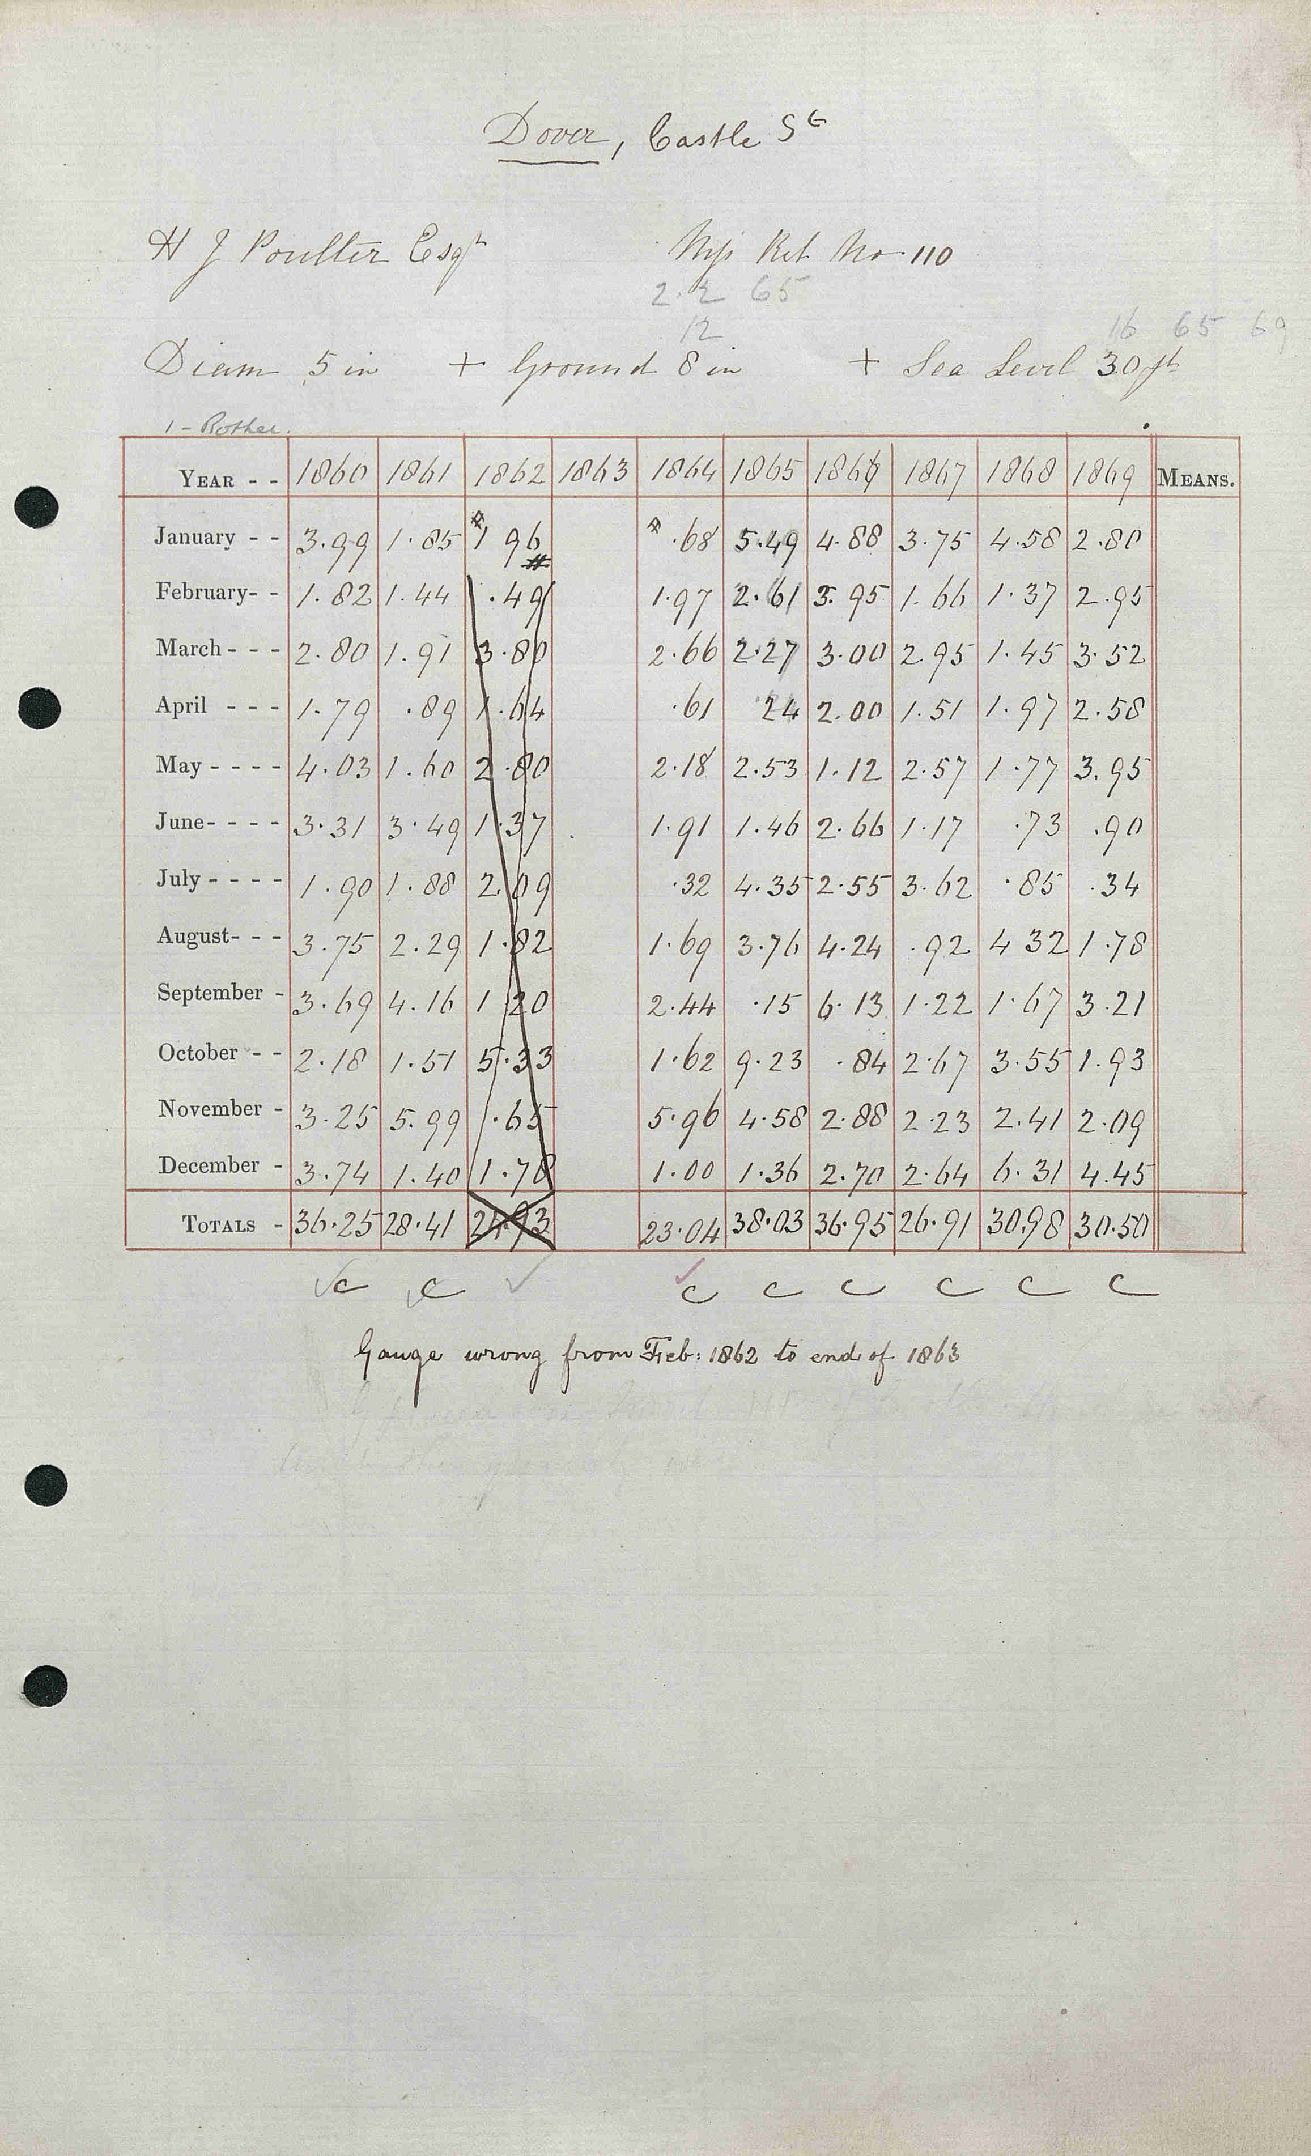 Dover, Castle St
H J Poulter Esqr Rep Ret No 110
2. 2 65
12 16 65 69
Diam 5 in + Ground 8 in + Sea Level 30 ft
1 - Rother.
YEAR - - 1860 1861 1862 1863 1864 1865 1866 1867 1868 1869 MEANS.
January - - 3.99 1.85 1 96 .68 5.49 4.88 3.75 4.58 2.80
February - - 1.82 1.44 .49 1.97 2.61 3.95 1.66 1.37 2.95
March - - - 2.80 1.91 3.80 2.66 2.27 3.00 2.95 1.45 3.52
April - - - 1.79 .89 1.64 .61 24 2.00 1.51 1.97 2.58
May - - - - 4.03 1.60 2.80 2.18 2.53 1.12 2.57 1.77 3.95
June - - - - 3.31 3.49 1.37 1.91 1.46 2.66 1.17 .73 .90
July - - - - 1.90 1.88 2.09 .32 4.35 2.55 3.62 .85 .34
August - - - 3.75 2.29 1.82 1.69 3.76 4.24 .92 4 32 1.78
September - 3.69 4.16 1 20 2.44 .15 6.13 1.22 1.67 3.21
October - - 2.18 1.51 5.33 1.62 9.23 .84 2.67 3.55 1.93
November - 3.25 5.99 .65 5.96 4.58 2.88 2.23 2.41 2.09
December - 3.74 1.40 1.78 1.00 1.36 2.70 2.64 6.31 4.45
TOTALS - 36.25 28.41 24.93 23.04 38.03 36.95 26.91 30.98 30.50
c c c c c c c c
Gauge wrong from Feb: 1862 to end of 1863